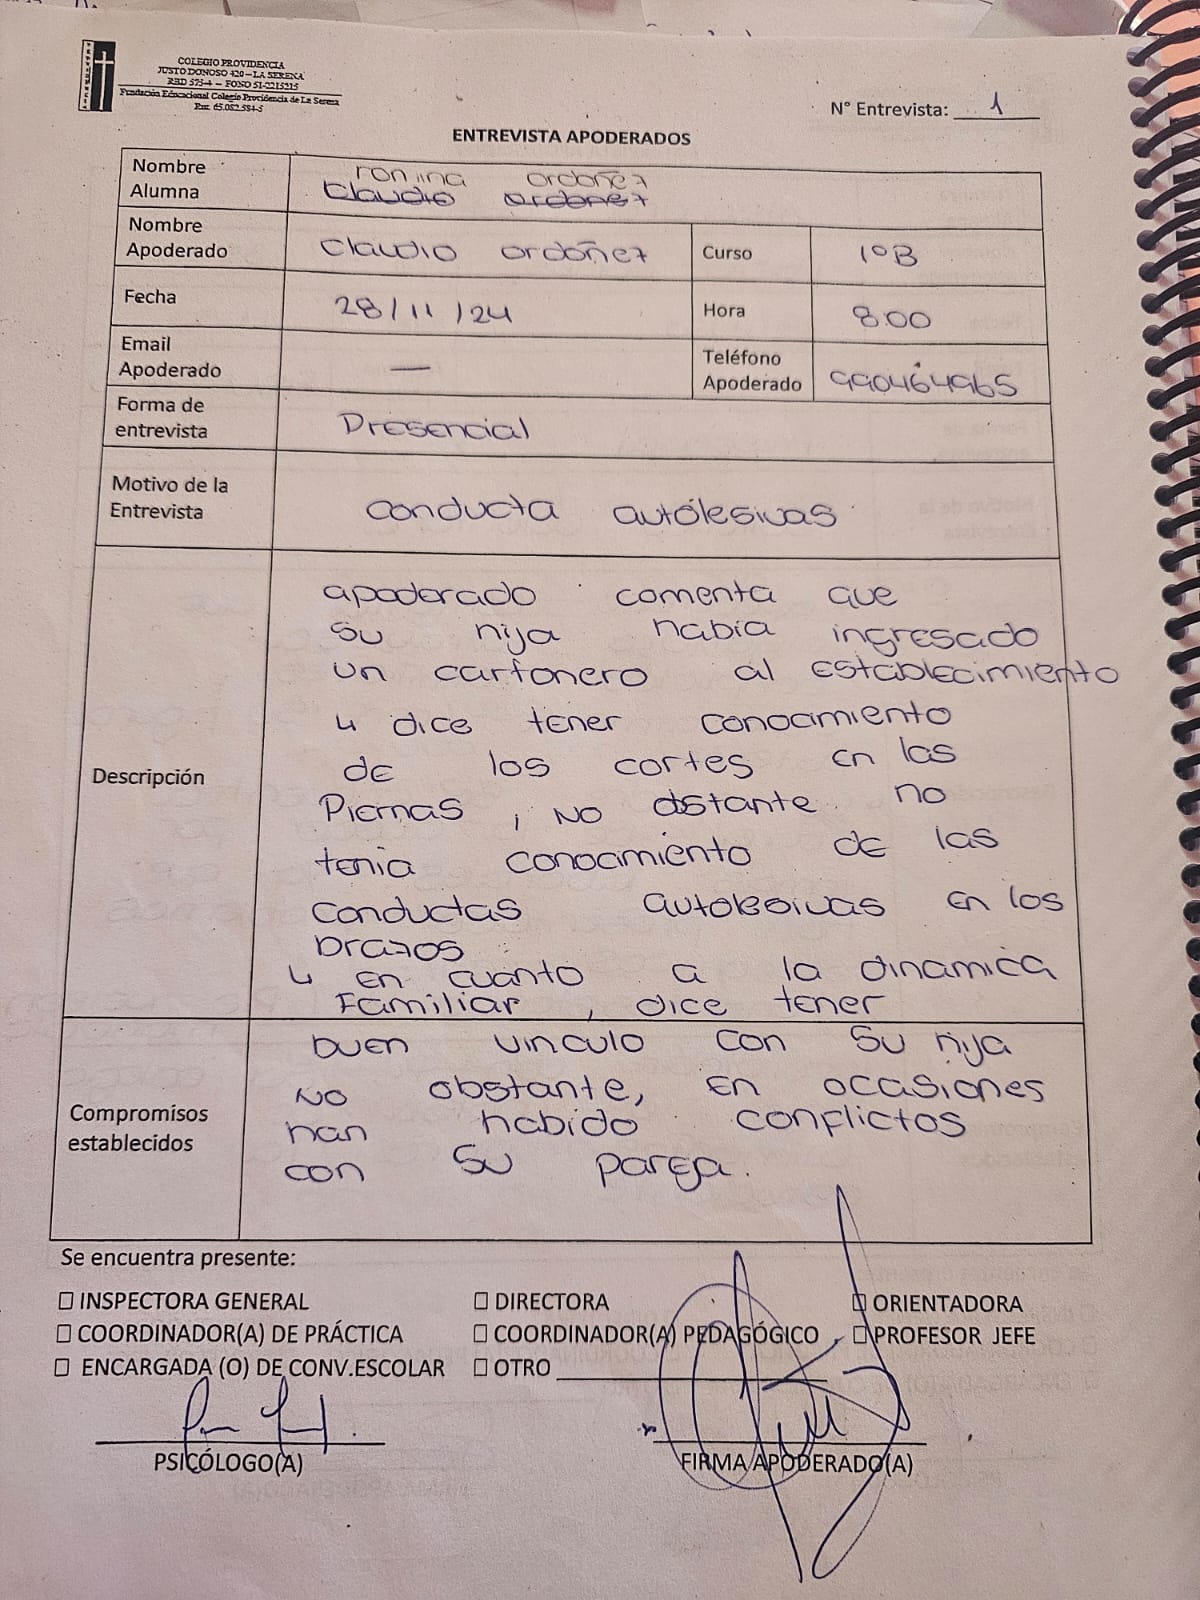 COLEGIO PROVIDENCIA
JUSTO DONOSO 420 – LA SERENA
RBD 575-4 – FONO 51-2215215
Fundación Educacional Colegio Providencia de La Serena
Rut: 65.082.584-5
N° Entrevista: 1
ENTREVISTA APODERADOS
Nombre Alumna
romina ordoñez
Claudio ordoñez
Nombre Apoderado
Claudio ordoñez
Curso
1°B
Fecha
28/11/24
Hora
8:00
Email Apoderado
—
Teléfono Apoderado
990464965
Forma de entrevista
Presencial
Motivo de la Entrevista
conducta autolesivas
Descripción
apoderado comenta que
su hija había ingresado
un cartonero al establecimiento
↳ dice tener conocimiento
de los cortes en las
Piernas, no obstante no
tenia conocimiento de las
conductas autolesivas en los
brazos
↳ en cuanto a la dinamica
Familiar, dice tener
Compromisos establecidos
buen vinculo con su hija
No obstante, en ocasiones
han habido conflictos
con su pareja.
Se encuentra presente:
☐ INSPECTORA GENERAL ☐ DIRECTORA ☐ ORIENTADORA
☐ COORDINADOR(A) DE PRÁCTICA ☐ COORDINADOR(A) PEDAGÓGICO ☐ PROFESOR JEFE
☐ ENCARGADA (O) DE CONV.ESCOLAR ☐ OTRO
PSICÓLOGO(A) FIRMA APODERADO(A)